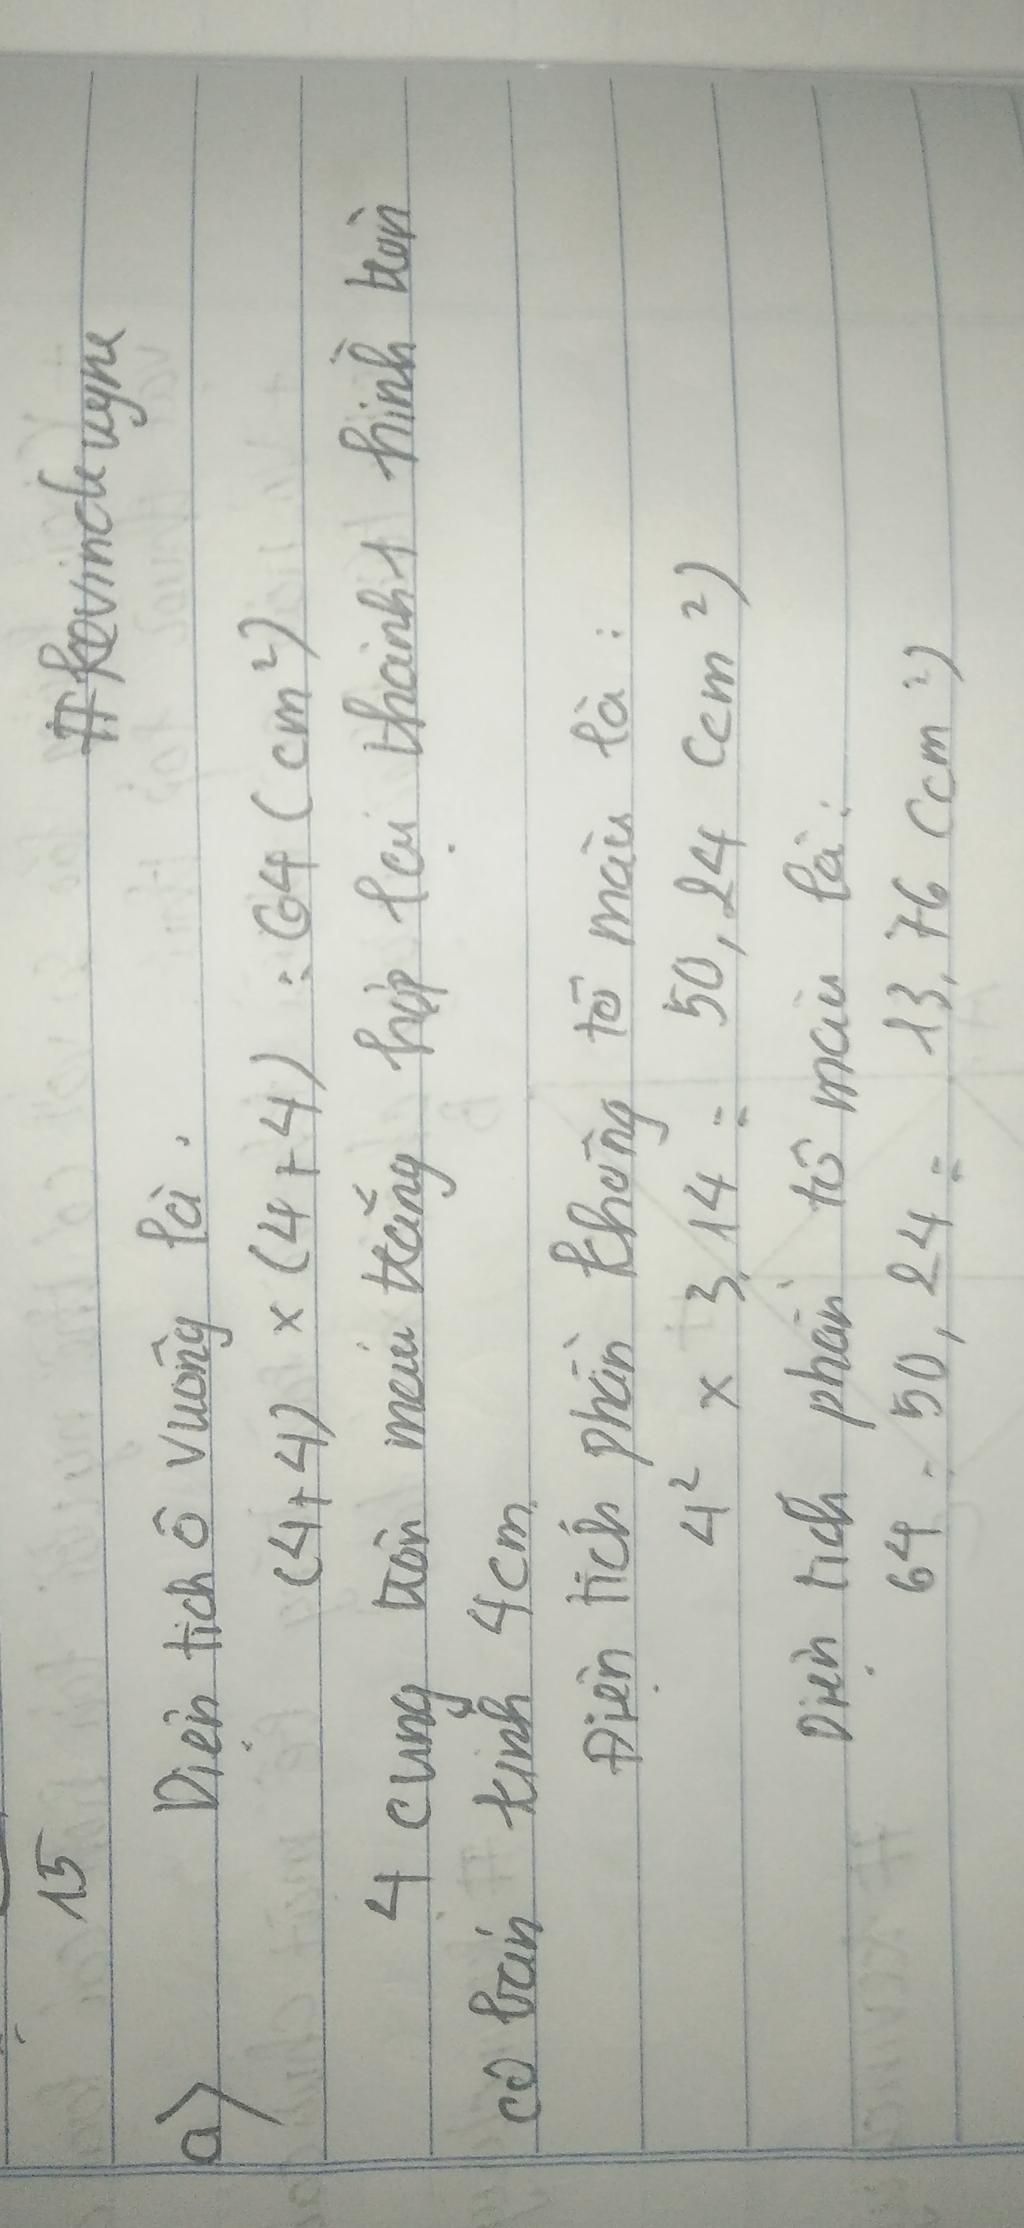 15
#kevinduyne
a) Diện tích ô vuông là:
(4+4) x (4+4) = 64 (cm²)
4 cung tròn màu trắng hợp lại thành 1 hình tròn
có bán kính 4cm
Diện tích phần không tô màu là:
4² x 3,14 = 50,24 (cm²)
Diện tích phần tô màu là:
64 - 50,24 = 13,76 (cm²)